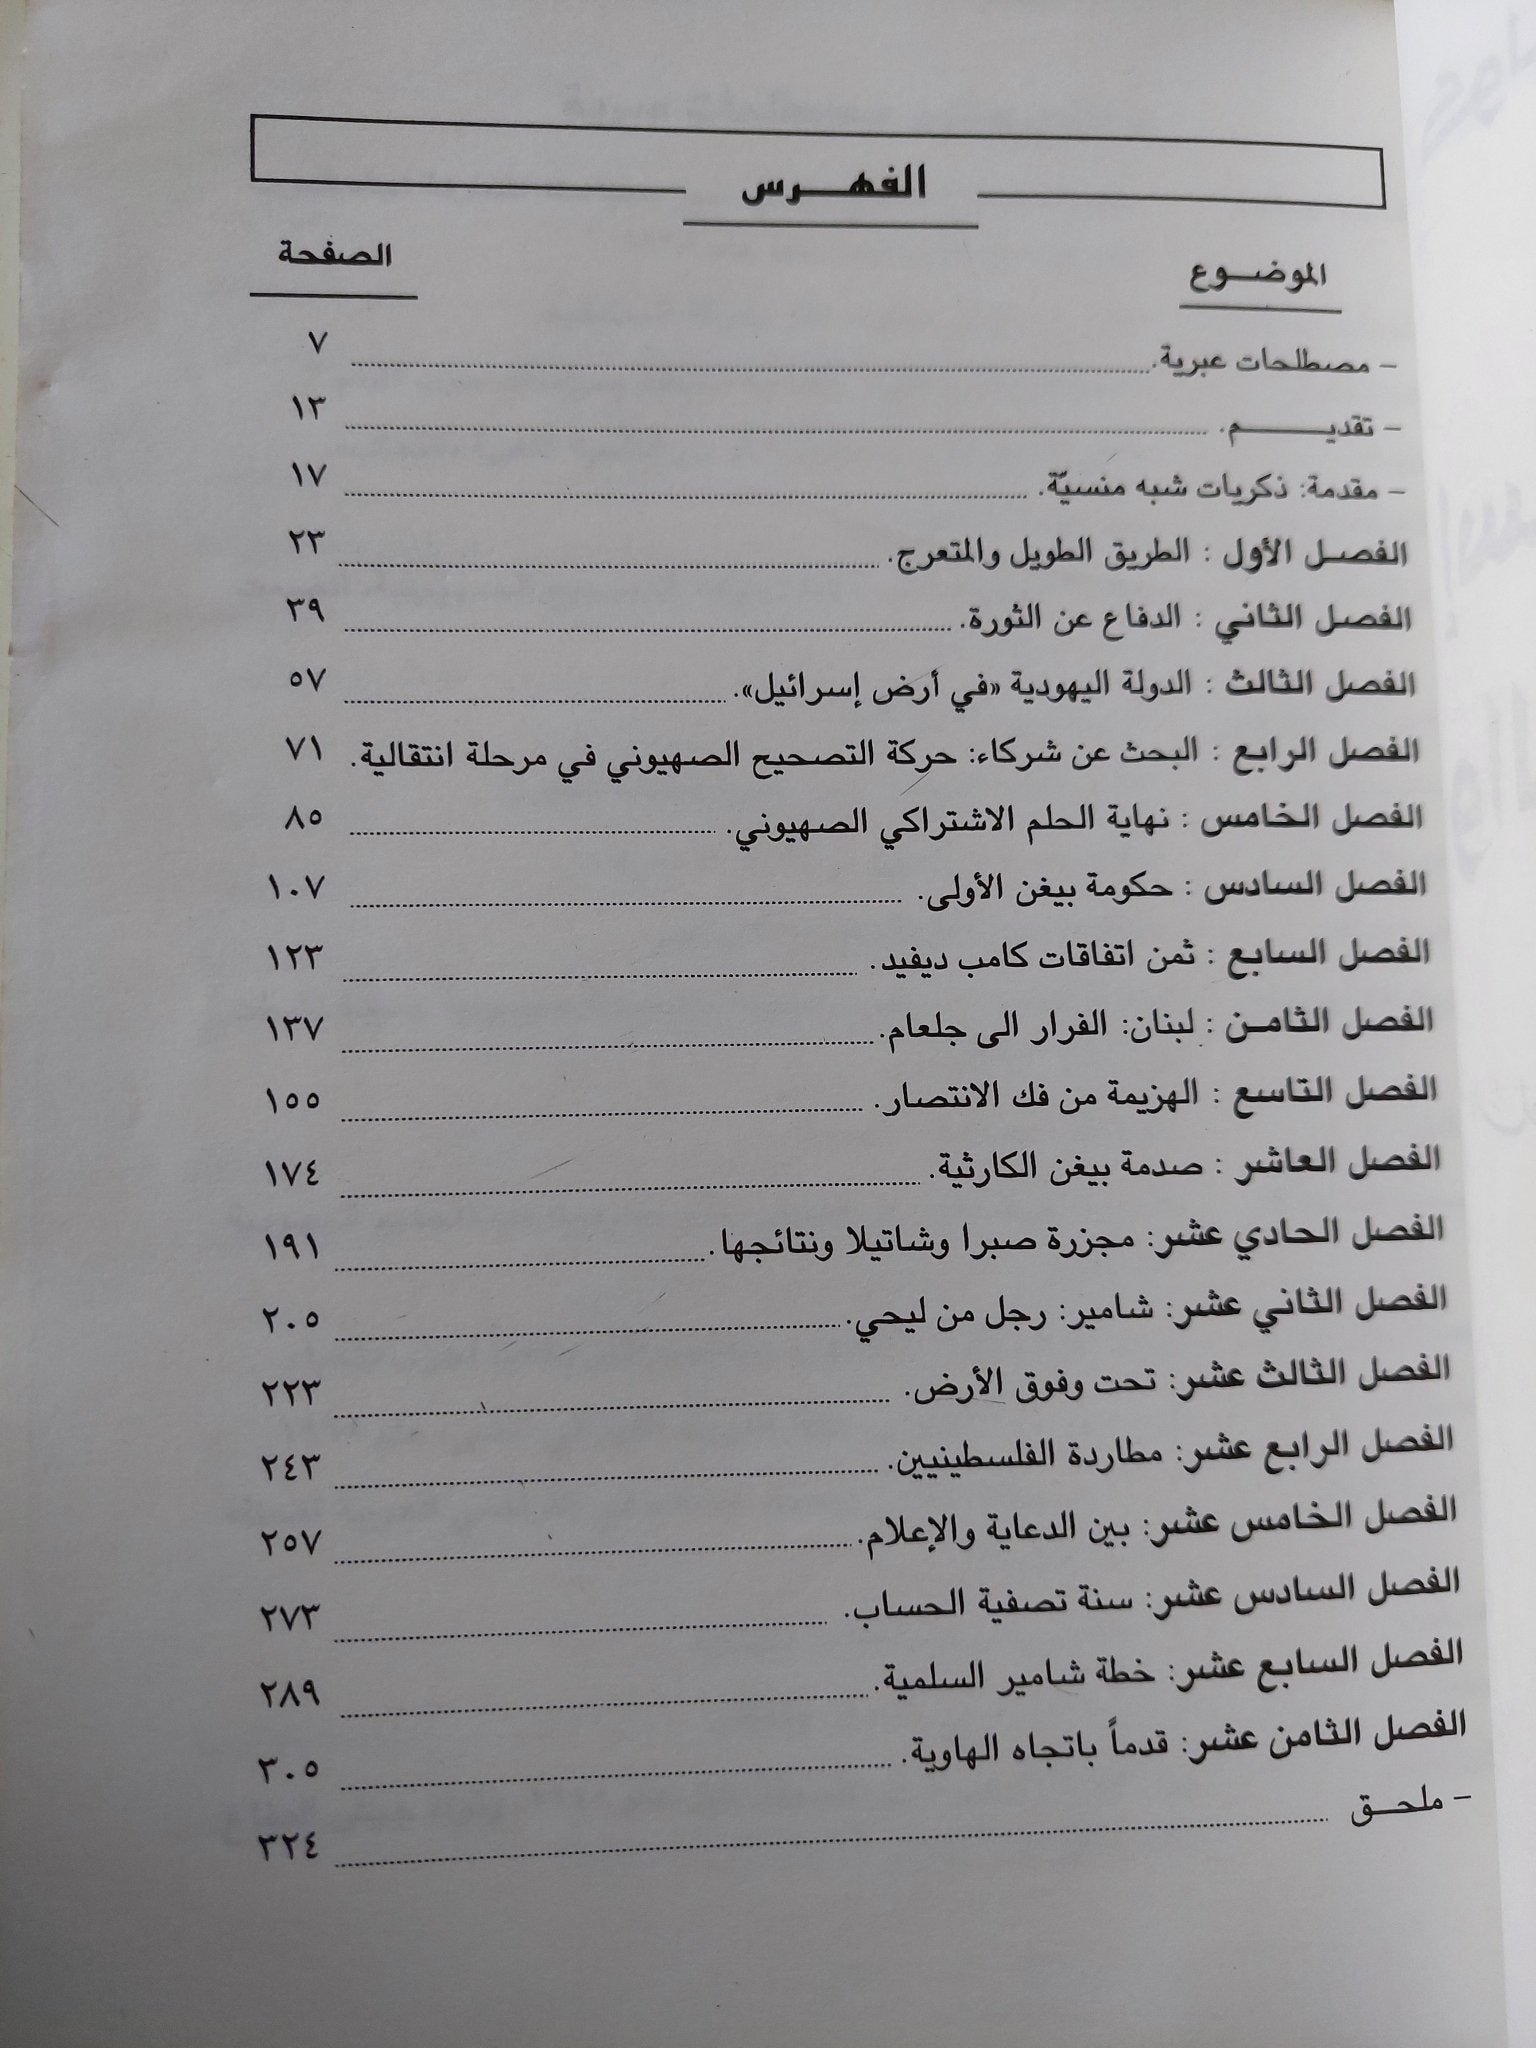 الفهرس
الموضوع الصفحة
– مصطلحات عبرية. ٧
– تقديم. ١٣
– مقدمة: ذكريات شبه منسيّة. ١٧
الفصل الأول : الطريق الطويل والمتعرج. ٢٣
الفصل الثاني : الدفاع عن الثورة. ٣٩
الفصل الثالث : الدولة اليهودية «في أرض إسرائيل». ٥٧
الفصل الرابع : البحث عن شركاء: حركة التصحيح الصهيوني في مرحلة انتقالية. ٧١
الفصل الخامس : نهاية الحلم الاشتراكي الصهيوني. ٨٥
الفصل السادس : حكومة بيغن الأولى. ١٠٧
الفصل السابع : ثمن اتفاقات كامب ديفيد. ١٢٣
الفصل الثامن : لبنان: الفرار الى جلعام. ١٣٧
الفصل التاسع : الهزيمة من فك الانتصار. ١٥٥
الفصل العاشر : صدمة بيغن الكارثية. ١٧٤
الفصل الحادي عشر: مجزرة صبرا وشاتيلا ونتائجها. ١٩١
الفصل الثاني عشر: شامير: رجل من ليحي. ٢٠٥
الفصل الثالث عشر: تحت وفوق الأرض. ٢٢٣
الفصل الرابع عشر: مطاردة الفلسطينيين. ٢٤٣
الفصل الخامس عشر: بين الدعاية والإعلام. ٢٥٧
الفصل السادس عشر: سنة تصفية الحساب. ٢٧٣
الفصل السابع عشر: خطة شامير السلمية. ٢٨٩
الفصل الثامن عشر: قدماً باتجاه الهاوية. ٣٠٥
– ملحق ٣٢٤